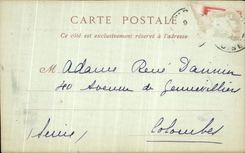 CARTE POSTALE
Ce côté est exclusivement réservé à l'adresse
M Adame René Dannier
40 Avenue de Gennevilliers
Colombes
Seine